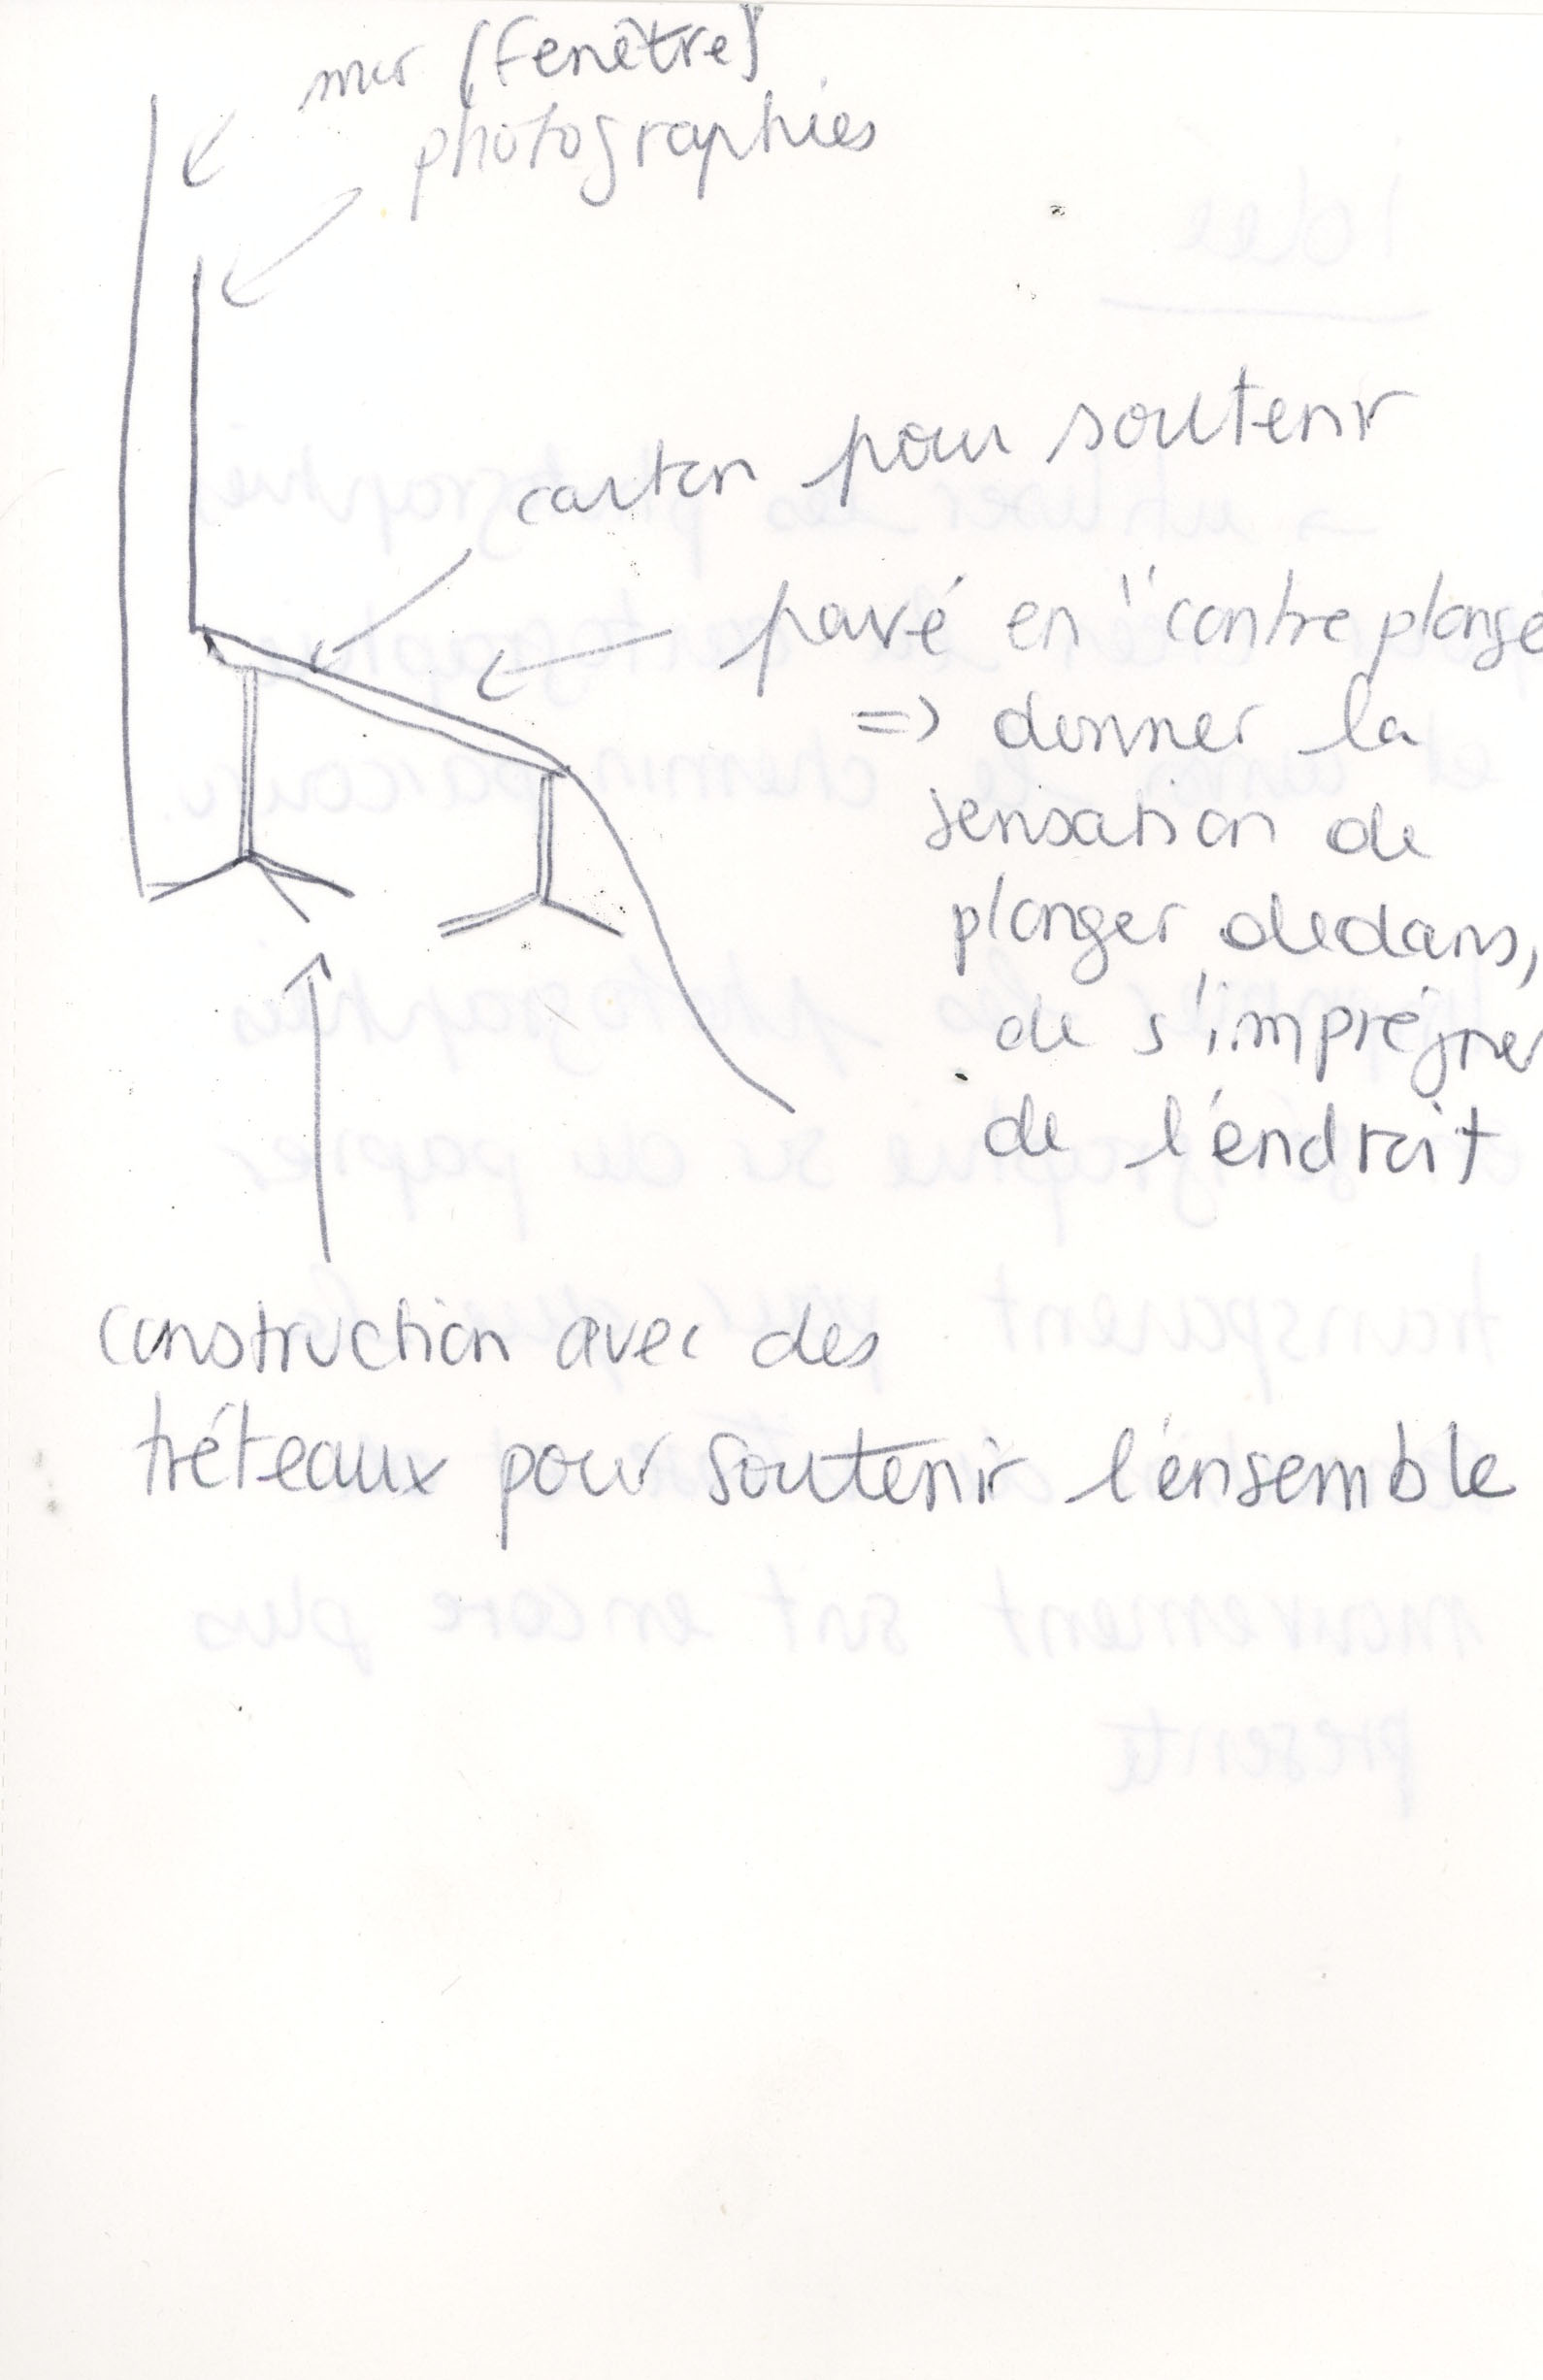 mur (fenêtre)
photographies
carton pour soutenir
pavé en "contre plongé
=> donner la
sensation de
plonger dedans,
de s'imprégner
de l'endroit
construction avec des
tréteaux pour soutenir l'ensemble